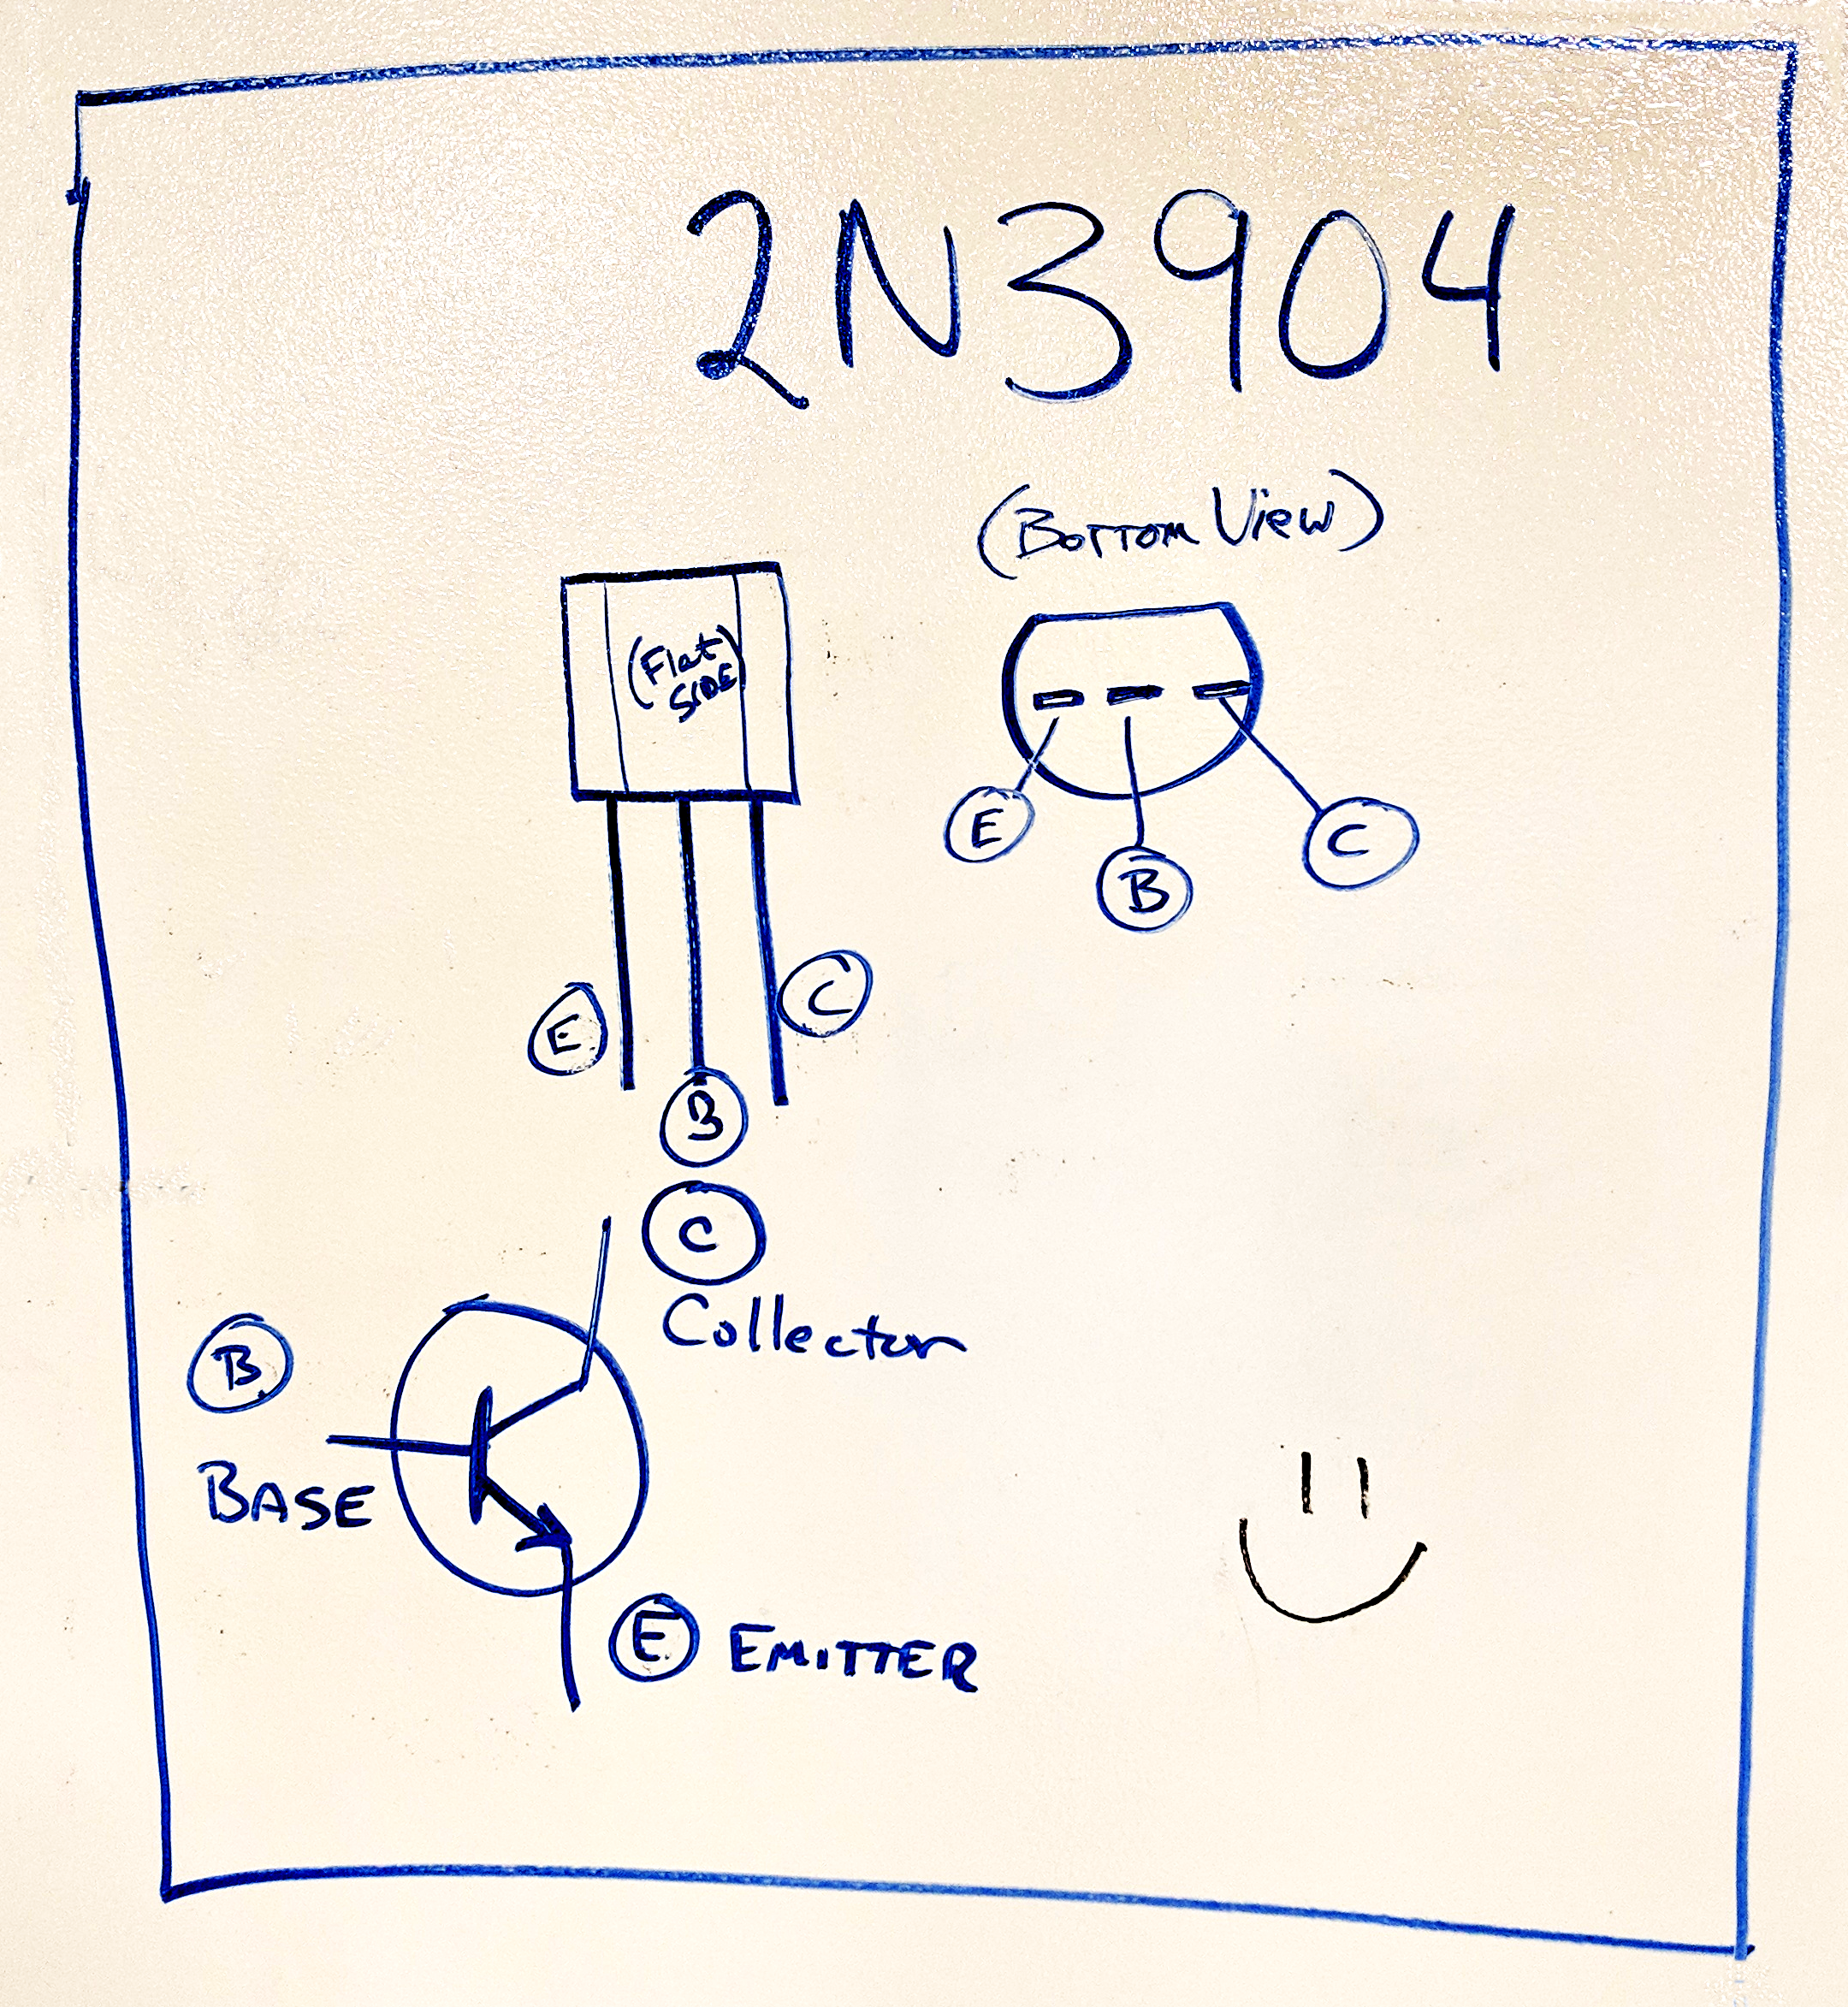 2N3904
(BOTTOM VIEW)
(Flat
SIDE)
E
B
C
E
B
C
C
Collector
B
BASE
E EMITTER